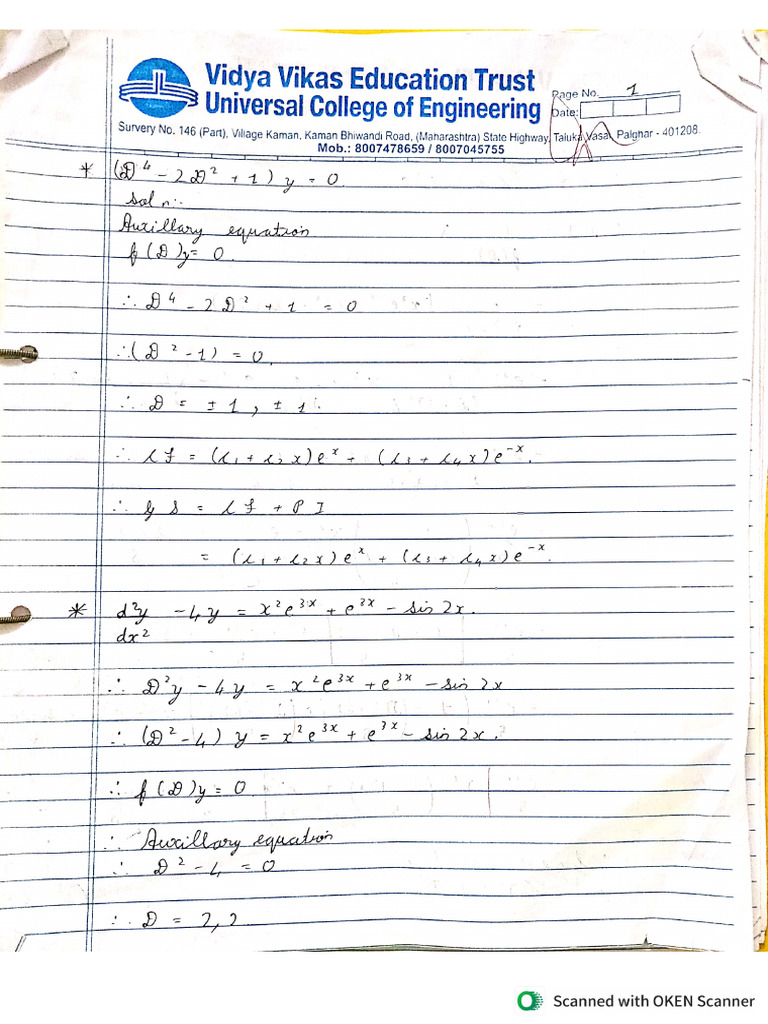 Vidya Vikas Education Trust
Universal College of Engineering
Page No. 1
Date:
Survery No. 146 (Part), Village Kaman, Kaman Bhiwandi Road, (Maharashtra) State Highway, Taluka Vasai, Palghar - 401208.
Mob.: 8007478659 / 8007045755
* (D⁴ - 2D² + 1) y = 0.
Soln:-
Auxillary equation
f(D)y = 0.
∴ D⁴ - 2D² + 1 = 0
∴ (D² - 1) = 0.
∴ D = ±1, ±1.
∴ CF = (C₁ + C₂x)eˣ + (C₃ + C₄x)e⁻ˣ.
∴ GS = CF + PI
= (C₁ + C₂x)eˣ + (C₃ + C₄x)e⁻ˣ.
* d²y/dx² - 4y = x²e³ˣ + e³ˣ - sin 2x.
∴ D²y - 4y = x²e³ˣ + e³ˣ - sin 2x
∴ (D² - 4) y = x²e³ˣ + e³ˣ - sin 2x.
∴ f(D)y = 0
∴ Auxillary equation
∴ D² - 4 = 0
∴ D = 2, 2
Scanned with OKEN Scanner